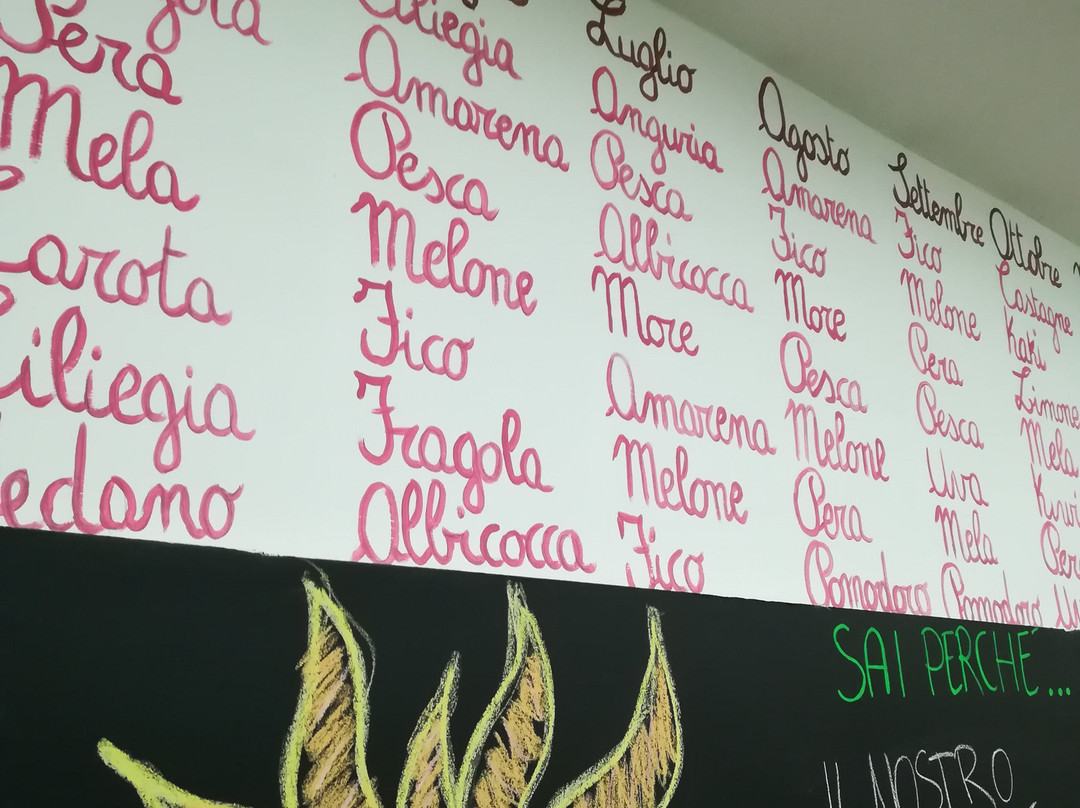 Pera
Mela
Carota
Ciliegia
Sedano
Ciliegia
Amarena
Pesca
Melone
Fico
Fragola
Albicocca
Luglio
Anguria
Pesca
Albicocca
More
Amarena
Melone
Fico
Agosto
Amarena
Fico
More
Pesca
Melone
Pera
Pomodoro
Settembre
Fico
Melone
Pera
Pesca
Uva
Mela
Pomodoro
Ottobre
Castagne
Kaki
Limone
Mela
Kiwi
Pera
SAI PERCHÉ...
IL NOSTRO